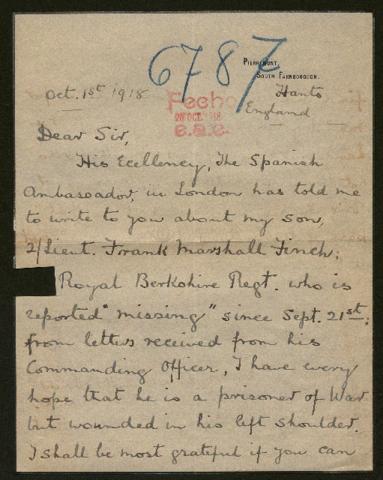 6787
Pierremont,
South Farnborough.
Oct. 1st 1918
Hants
England
Fecho
28 OCT. 1918
e.a.e.
Dear Sir,
His Ecellency, The Spanish
Ambassador, in London has told me
to write to you about my son,
2/Lieut. Frank Marshall Finch;
Royal Berkshire Regt. who is
reported "missing" since Sept. 21st;
from letters received from his
Commanding Officer, I have every
hope that he is a prisoner of War
but wounded in his left shoulder.
I shall be most grateful if you can